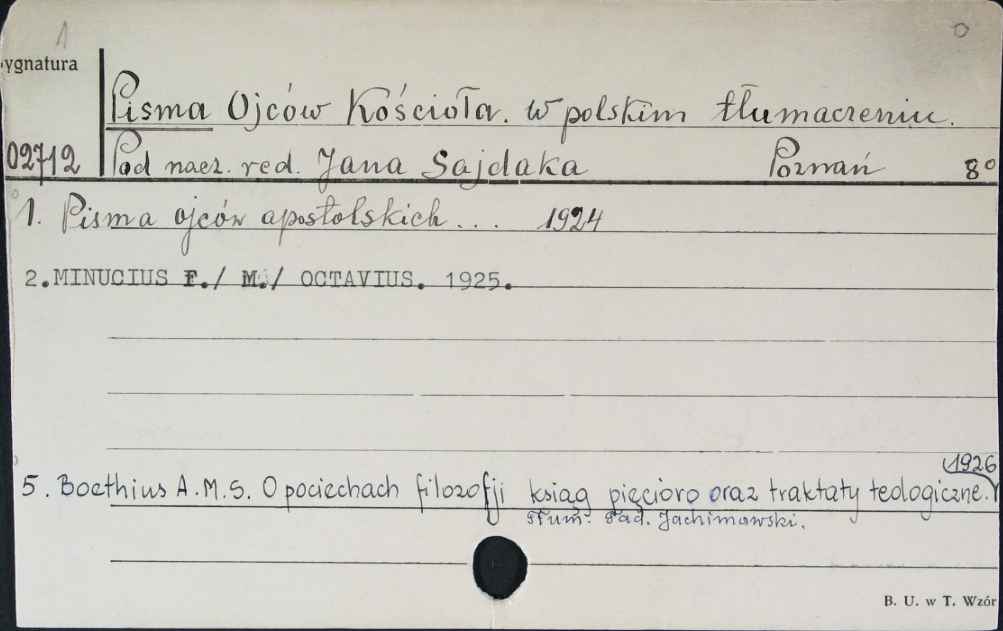 1
ygnatura
Pisma Ojców Kościoła. w polskim tłumaczeniu.
02712 Pod nacz. red. Jana Sajdaka Poznań 8°
1. Pisma ojców apostolskich... 1924
2.MINUCIUS F./ M./ OCTAVIUS. 1925.
1926
5. Boethius A.M.S. O pociechach filozofji ksiąg pięcioro oraz traktaty teologiczne.
tłum. Tad. Jachimowski.
B. U. w T. Wzór